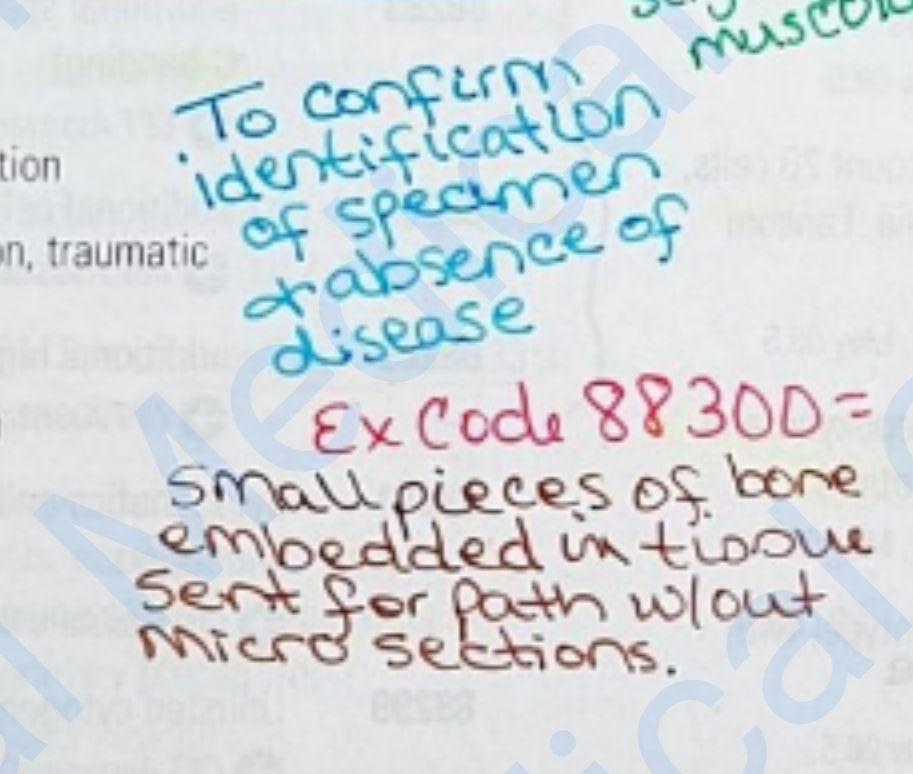 muscul
To confirm
identification
tion
of specimen
on, traumatic
& absence of
disease
Ex Code 88300=
Small pieces of bone
embedded in tissue
Sent for path w/out
Micro sections.
Medical